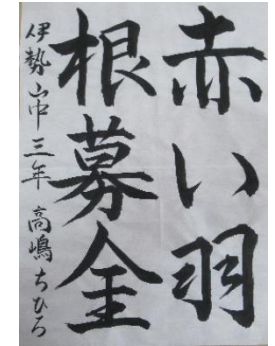 赤い羽
根募金
伊勢山中三年 高嶋ちひろ